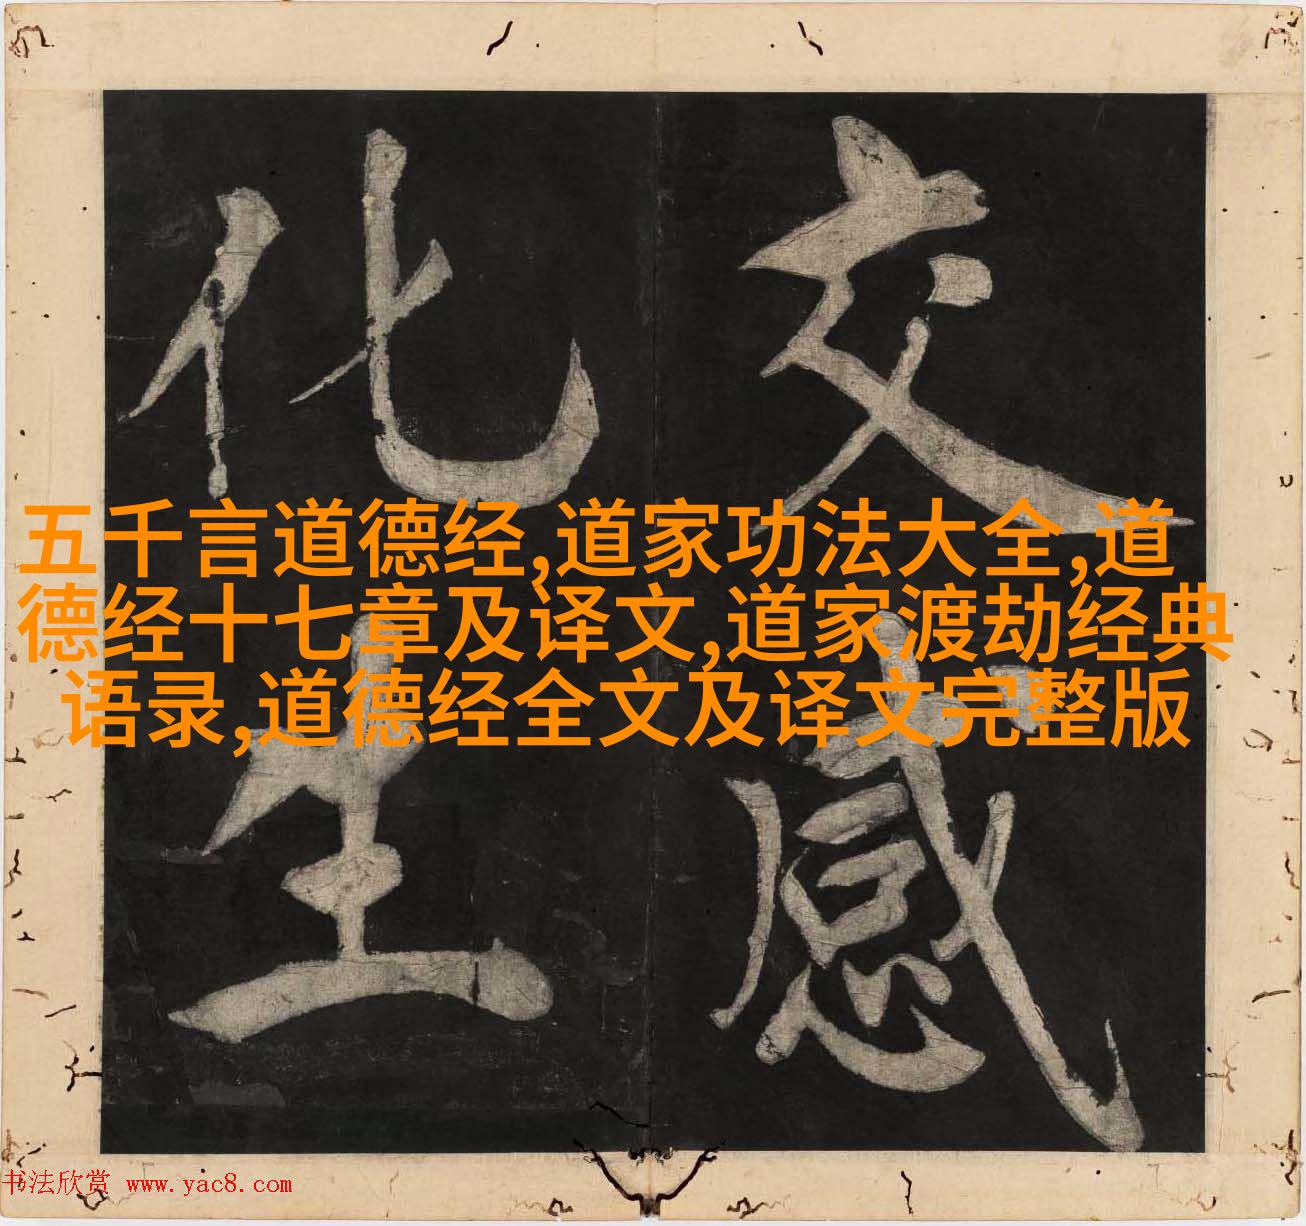 交感
化生
五千言道德经,道家功法大全,道
德经十七章及译文,道家渡劫经典
语录,道德经全文及译文完整版
书法欣赏 www.yac8.com